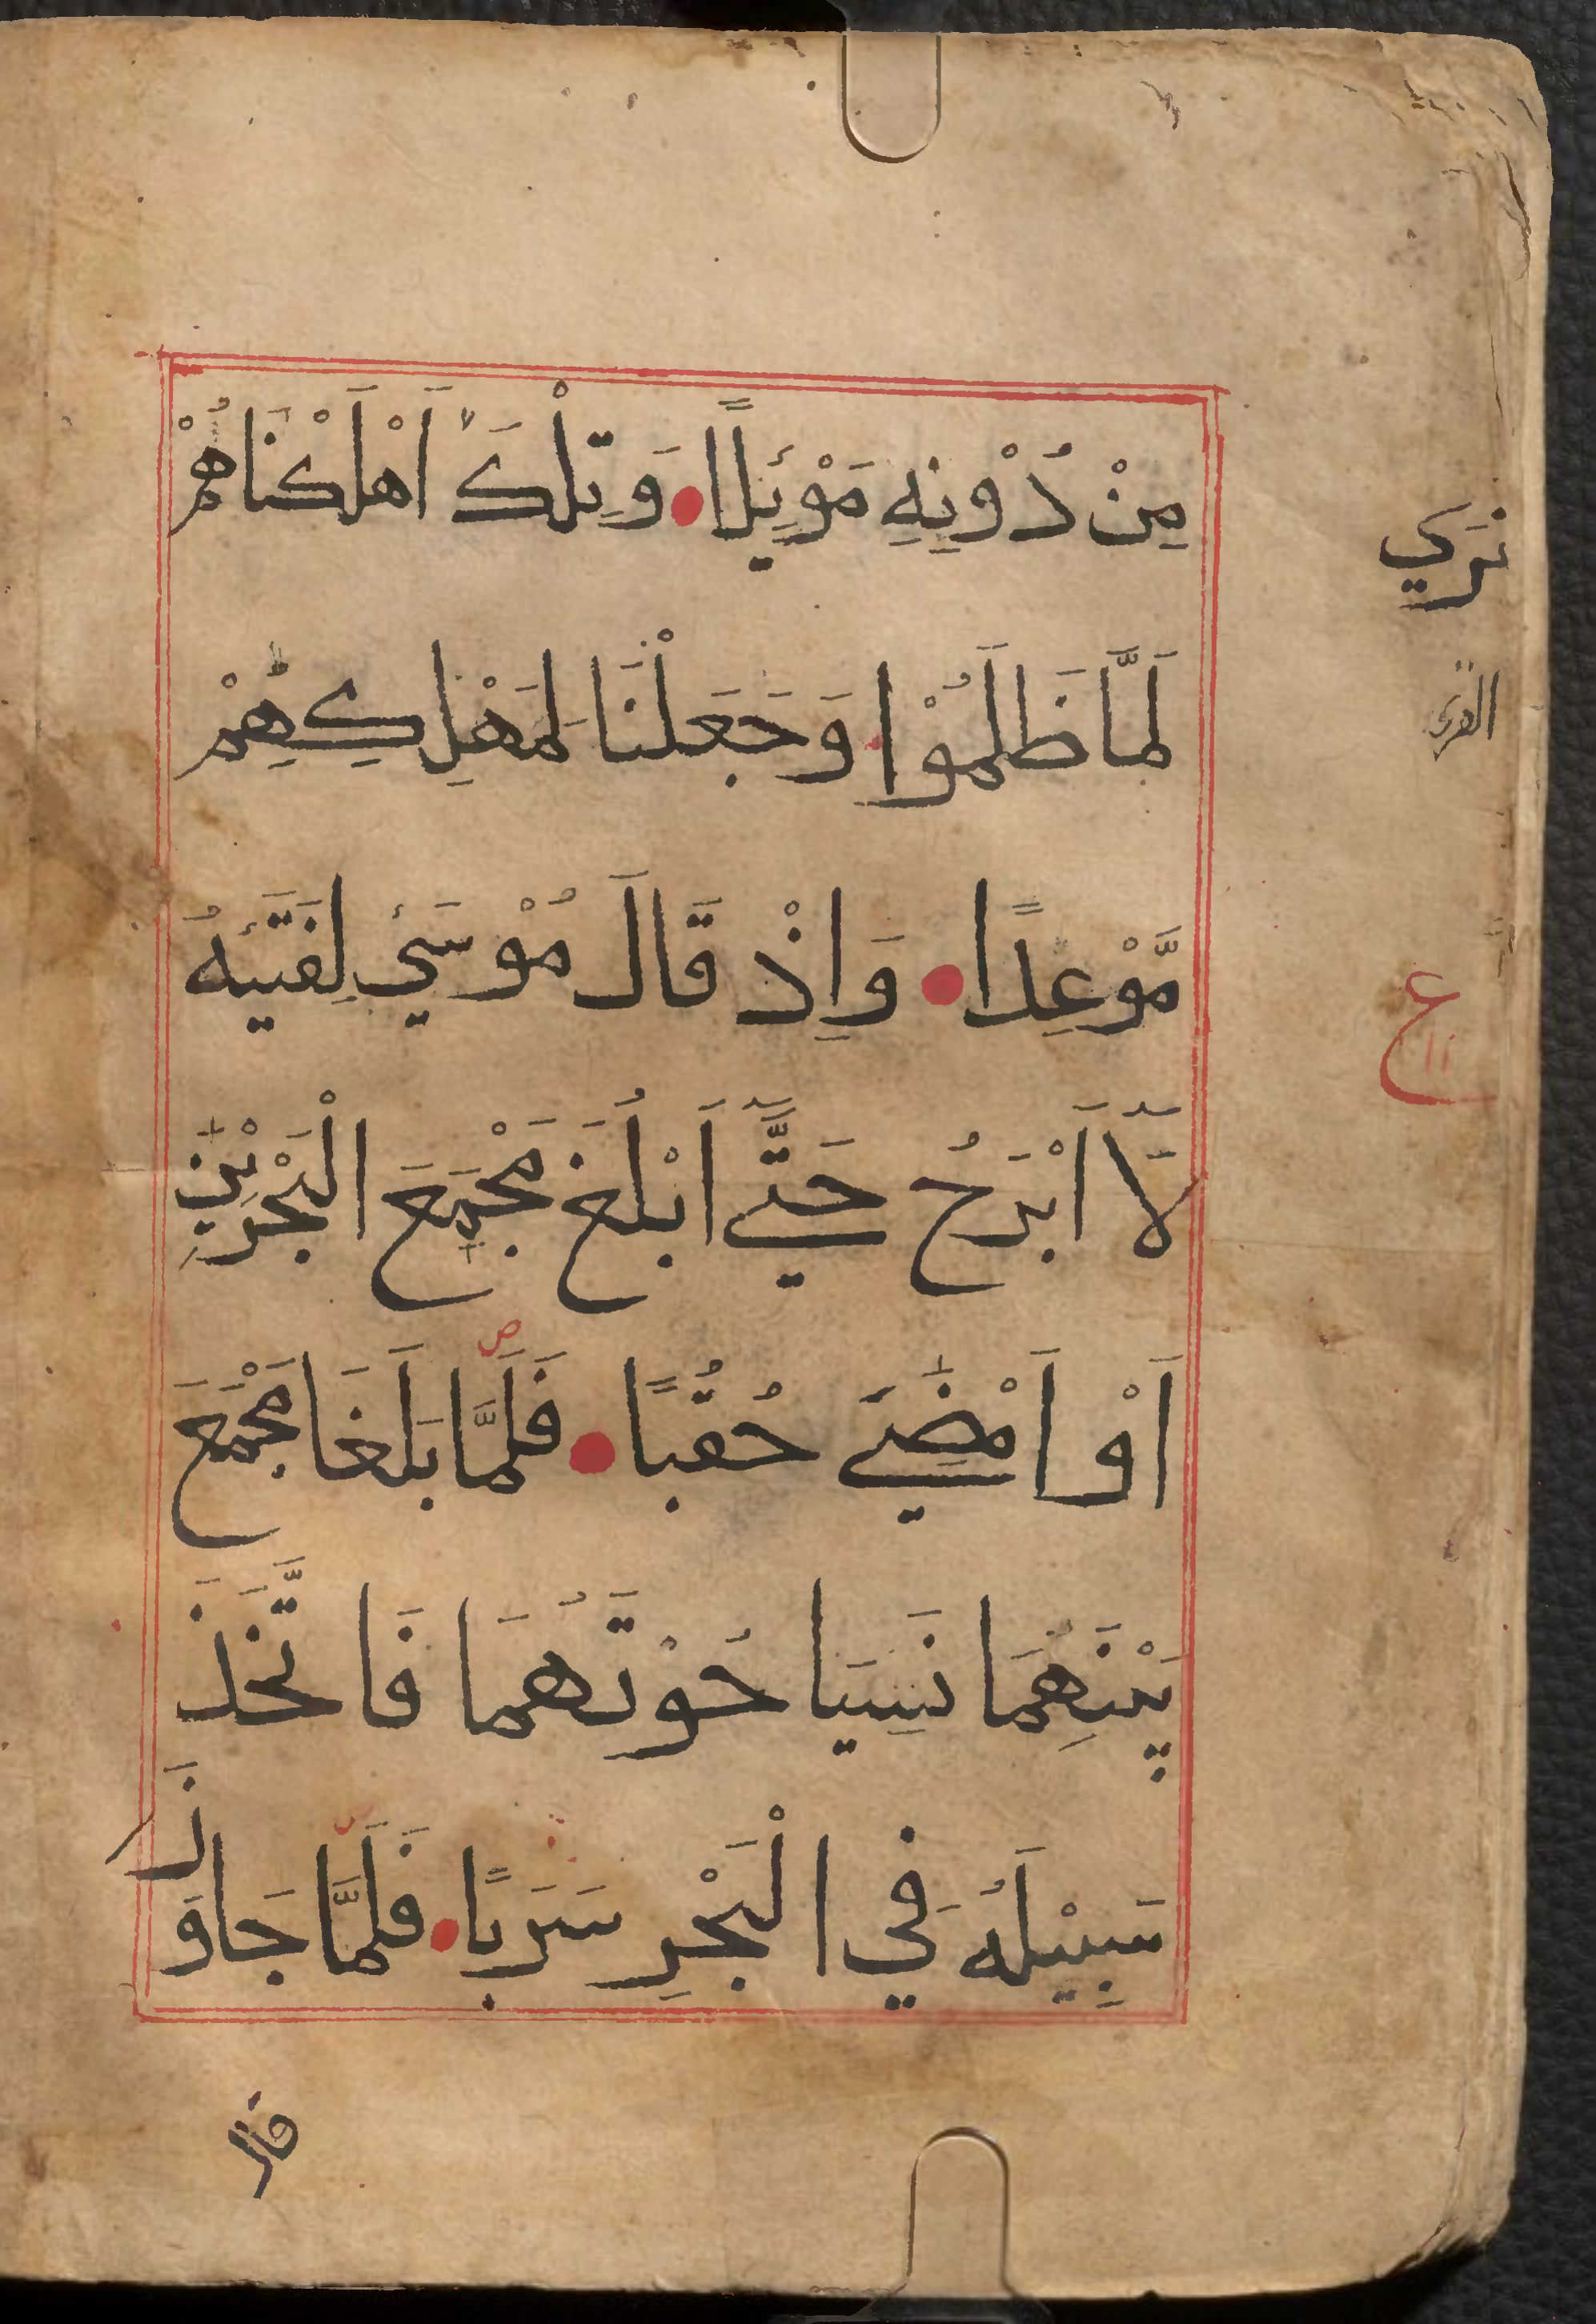 مِنْ دُوْنِهٖ مَوْئِلًا وَتِلْكَ اَهْلَكْنَاهُمْ
لَمَّا ظَلَمُوْا وَجَعَلْنَا لِمَهْلِكِهِمْ
مَّوْعِدًا وَاِذْ قَالَ مُوْسَي لِفَتَيٰهُ
لَآ اَبْرَحُ حَتّٰي اَبْلُغَ مَجْمَعَ الْبَحْرَيْنِ
اَوْ اَمْضِيَ حُقُبًا فَلَمَّا بَلَغَا مَجْمَعَ
بَيْنِهِمَا نَسِيَا حُوْتَهُمَا فَاتَّخَذَ
سَبِيْلَهُ فِي الْبَحْرِ سَرَبًا فَلَمَّا جَاوَزَ
القرى
ع
١١
قال